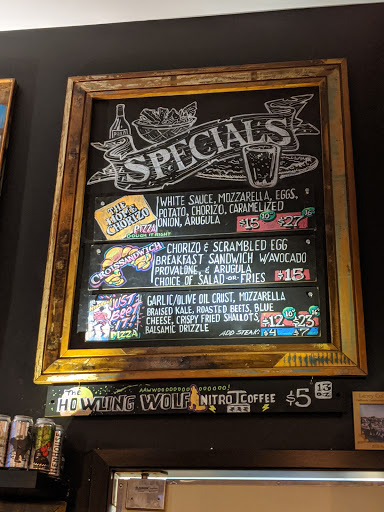 SPECIALS
THE HOLY CHORIZO
PIZZA
DOUGH IT RIGHT
WHITE SAUCE, MOZZARELLA, EGGS,
POTATO, CHORIZO, CARAMELIZED
ONION, ARUGULA
10" 16"
$15 $27
CROISSANDWICH
CHORIZO & SCRAMBLED EGG
BREAKFAST SANDWICH W/AVOCADO
PROVALONE, & ARUGULA
CHOICE OF SALAD OR FRIES
$15
JUST BEET IT!
PIZZA
GARLIC/OLIVE OIL CRUST, MOZZARELLA
BRAISED KALE, ROASTED BEETS, BLUE
CHEESE, CRISPY FRIED SHALLOTS,
BALSAMIC DRIZZLE
10" 16"
$12 $23
ADD STEAK! $4 $7
THE HOWLING WOLF NITRO COFFEE
$5 13 OZ